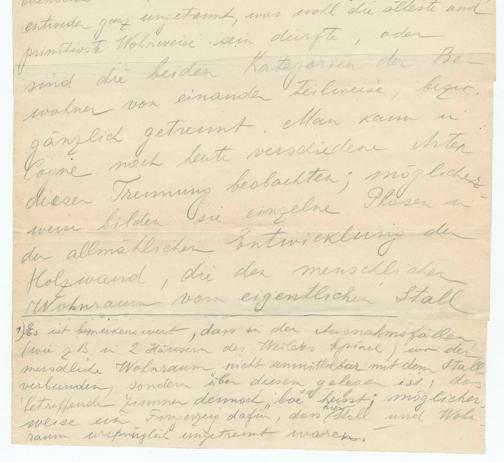 entweder ganz ungetrennt, was wohl die älteste und
primitivste Wohnweise sein dürfte, oder
sind die beiden Kategorien der Be-
wohner von einander teilweise, bezw.
gänzlich getrennt. Man kann in
noch heute verschiedene Arten
dieser Trennung beobachten; möglicher-
weise bilden sie einzelne Phasen in
der allmählichen Entwicklung der
Holzwand, die den menschlichen
Wohnraum vom eigentlichen Stall
1) Es ist bemerkenswert, dass in den Ausnahmsfällen
(wie z B in 2 Häusern des Weilers), wo der
menschliche Wohnraum nicht unmittelbar mit dem Stall
verbunden, sondern über diesen gelegen ist, das
betreffende Zimmer dennoch heisst; möglicher-
weise ein Fingerzeig dafür, dass Stall und Wohn-
raum ursprünglich ungetrennt waren.